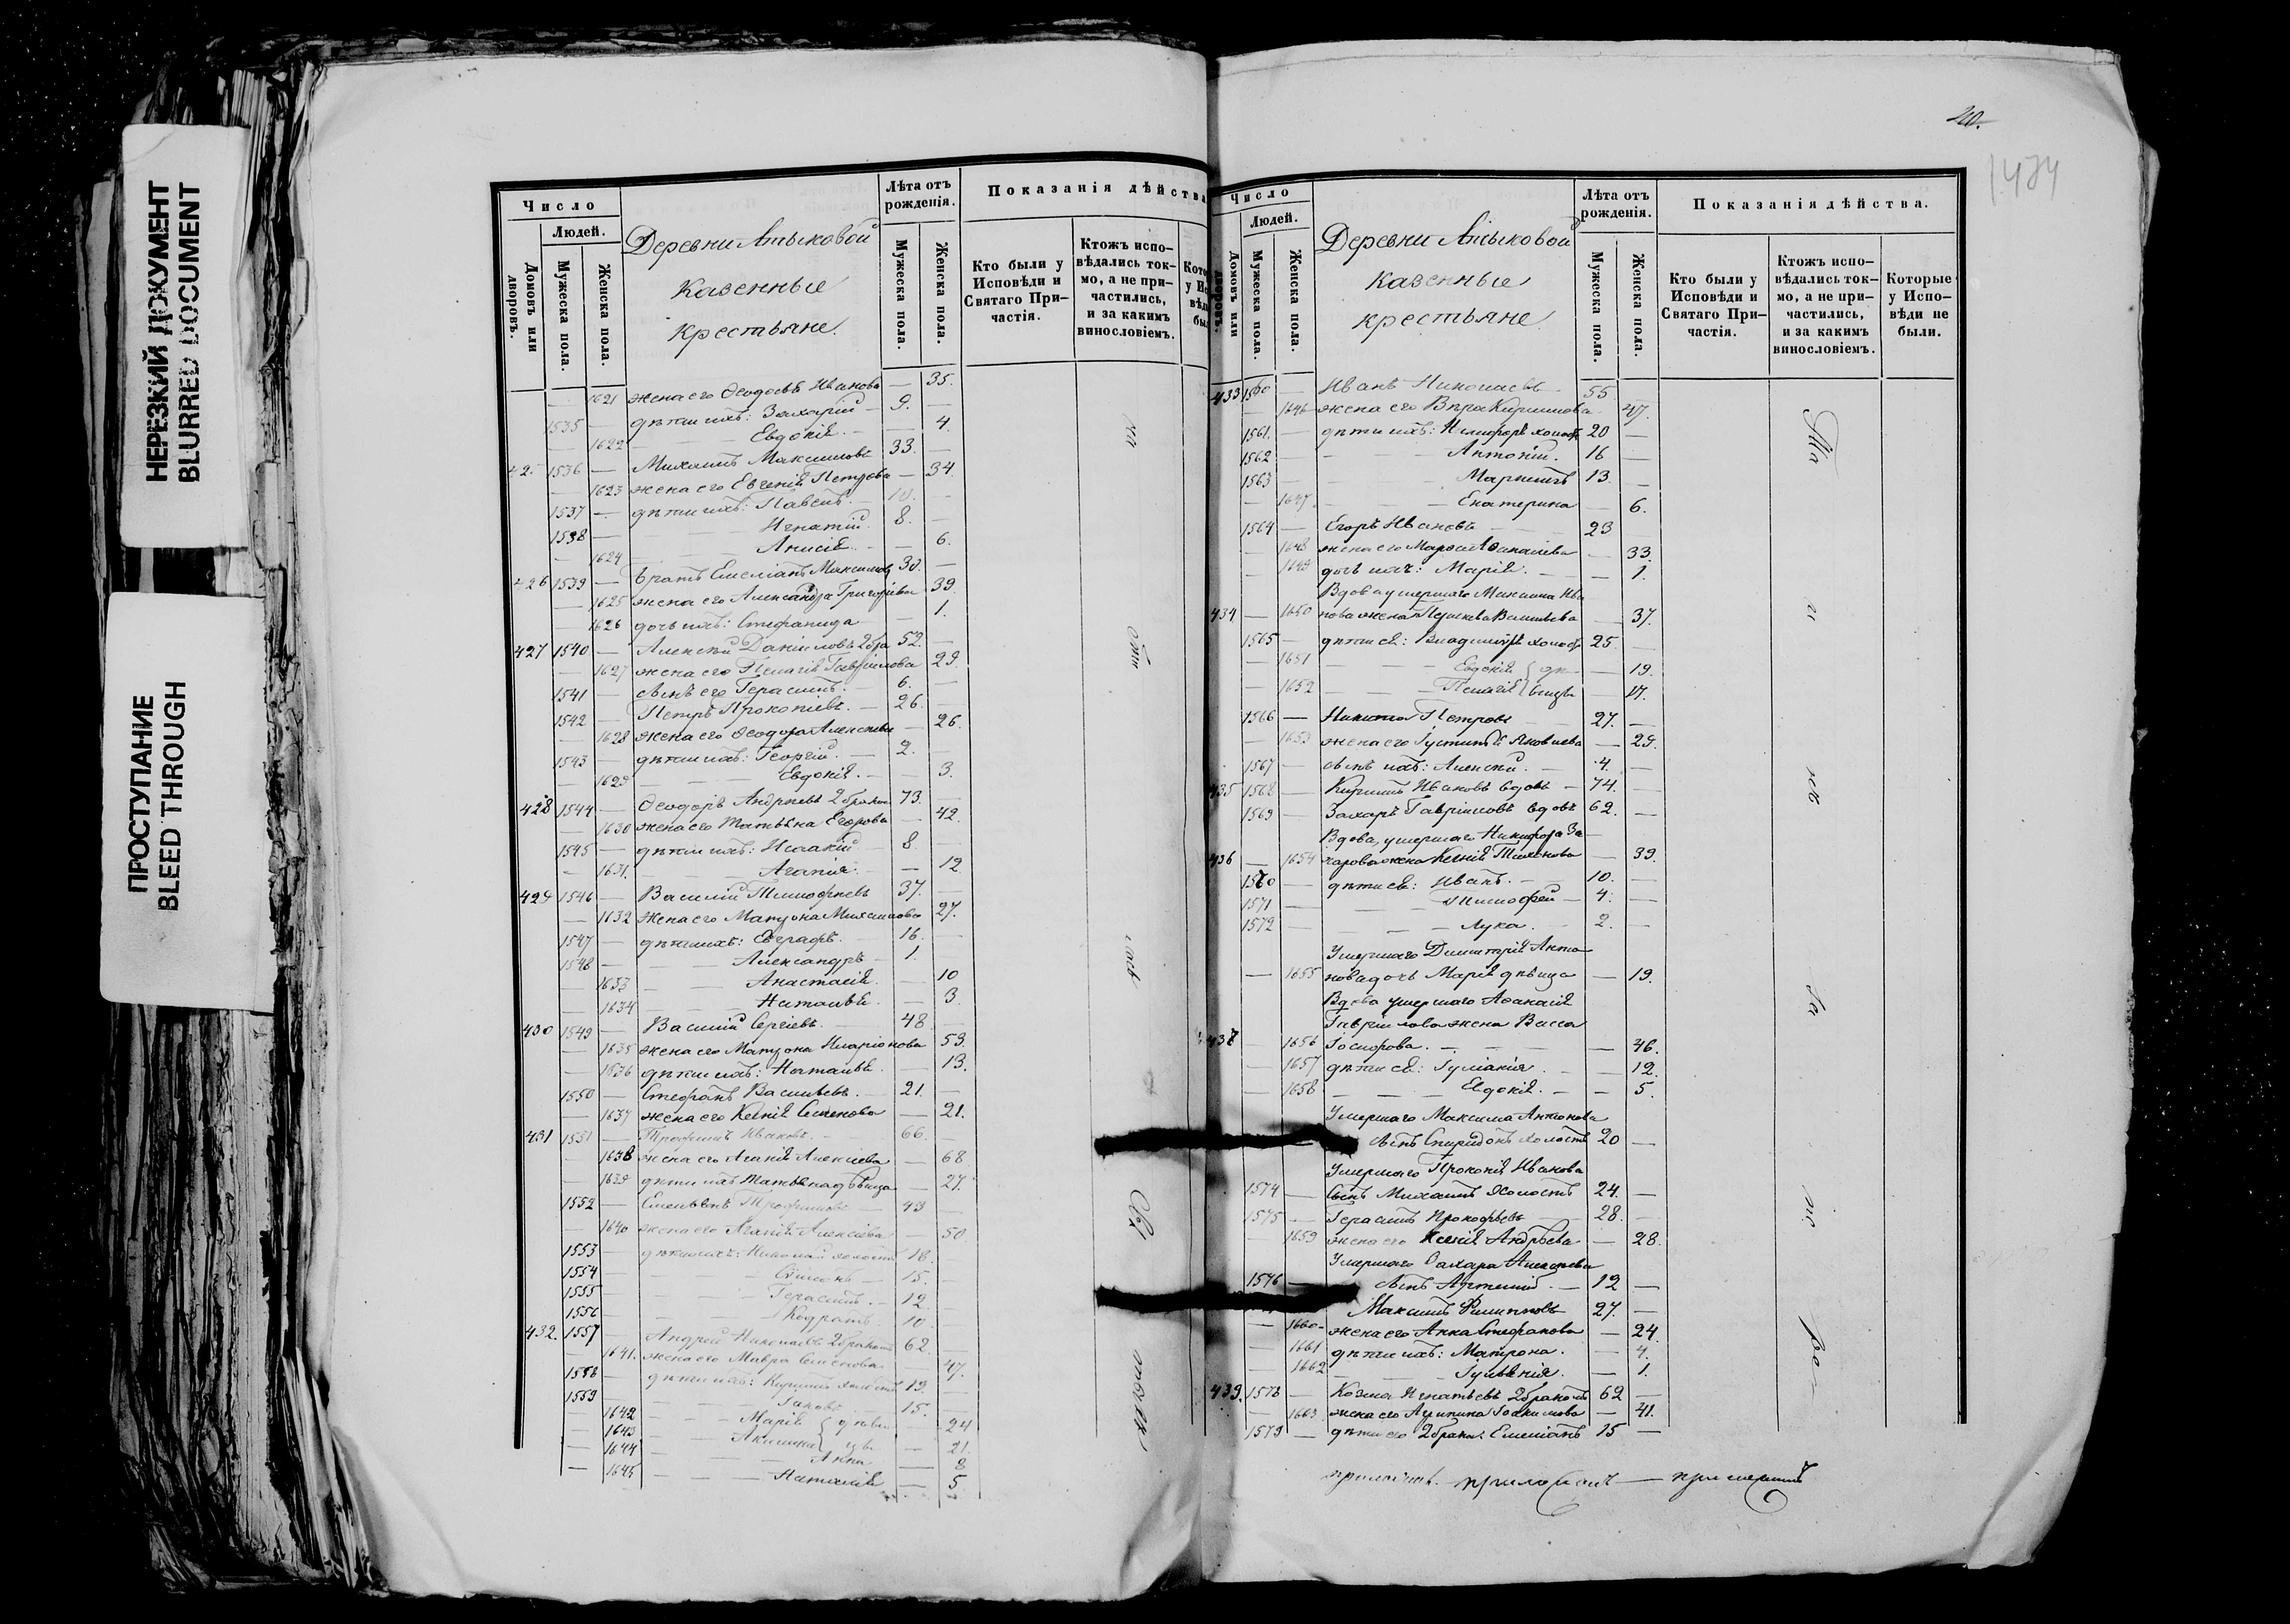 НЕРЕЗКИЙ ДОКУМЕНТ
BLURRED DOCUMENT
ПРОСТУПАНИЕ
BLEED THROUGH
Число
Людей.
Домовъ или дворовъ.
Мужеска пола.
Женска пола.
Деревни
казенные
крестьяне.
Лѣта отъ рожденія.
Мужеска пола.
Женска пола.
Показанія дѣйства
Кто были у Исповѣди и Святаго Причастія.
Ктожъ исповѣдались токмо, а не причастились, и за какимъ винословіемъ.
1621 жена его Ѳеодосья Иванова — 35.
1535 — дѣти ихъ: Захарій — 9. —
1622 Евдокія. — 4.
1536 — Михаилъ Максимовъ 33. —
1623 жена его Евгенія Петрова — 34.
1537 — дѣти ихъ: Павелъ. — 10. —
1538 — Игнатій. 8. —
1624 Анисія. — 6.
426 1539 — братъ Емеліанъ Максимовъ 30. —
1625 жена его Александра Григоріева 39.
1626 дочь ихъ: Стефанида — 1.
427 1540 — Алексѣй Даніиловъ 2 бра 52. —
1627 жена его Пелагія Гавріилова 29.
1541 — сынъ его Герасимъ. — 6. —
1542 — Петръ Прокопіевъ. — 26. —
1628 жена его Ѳеодора Алексѣева — 26.
1543 — дѣти ихъ: Георгій. — 2. —
1629 Евдокія. — 3.
428 1544 — Ѳеодоръ Андреевъ 2 бракомъ 73. —
1630 жена его Татьяна Егорова — 42.
1545 — дѣти ихъ: Исаакій — 8. —
1631. Агапія. — 12
429 1546 — Василій Тимофѣевъ 37. —
1632 жена его Матрона Максимова 27.
1547 — дѣти ихъ: Евграфъ. 16. —
1548 — Александръ — 1. —
1633 Анастасія. — 10
1634 Наталья. — 3.
430 1549 — Василій Сергіевъ. 48 —
1635 жена его Матрона Иларіонова 53.
1636 дѣти ихъ: Наталья. — 13.
1550 — Стефанъ Васильевъ. — 21. —
1637 жена его Ксенія Семенова — 21.
431 1551 — Трофимъ Ивановъ. — 66. —
1638 жена его Агапія Алексіева — 68
1639 дѣти ихъ Татьяна дѣвица — 27.
1552 — Емельянъ Трофимовъ — 49 —
1640 жена его Агапія Алексіева — 50
1553 — дѣти ихъ: Николай холостъ 18. —
1554 — Симеонъ — 15. —
1555 — Герасимъ. — 12. —
1556 — Кодратъ. 10. —
432. 1557 — Андрей Николаевъ 2 бракомъ 62. —
1641. жена его Мавра Семенова 47.
1558 — дѣти ихъ: Кириллъ холостъ 19. —
1559 Іаковъ — 15. —
1642 Марія 24
1643 Акилина 21.
1644 Анна 8
1645 Наталія — 5
40.
1484
Число
Людей.
Домовъ или дворовъ.
Мужеска пола.
Женска пола.
Деревни
казенные
крестьяне.
Лѣта отъ рожденія.
Мужеска пола.
Женска пола.
Показанія дѣйства.
Кто были у Исповѣди и Святаго Причастія.
Ктожъ исповѣдались токмо, а не причастились, и за какимъ винословіемъ.
Которые у Исповѣди не были.
433 1560 — Иванъ Николаевъ 55. —
1646 жена его Вѣра Кириллова 47.
1561. — дѣти ихъ: Никифоръ холост 20 —
1562 Антоній. 16 —
1563 Мартинъ 13. —
1647 Екатерина 6.
1564 — Егоръ Ивановъ 23
1648 жена его Марѳа Аѳанасіева — 33.
1649 дочь ихъ: Марія. — 1.
Вдова умершаго Максима Ива
434 — 1650 нова жена Пелагея Васильева 37.
1565 — дѣти ея: Владиміръ холост 25 —
1651 Евдокія 19.
1652 Пелагія 17.
1566 — Никита Петровъ 27. —
1653 жена его Іустинія Яковлева — 29.
1567 — сынъ ихъ: Алексѣй. — 4. —
435 1568 — Кириллъ Ивановъ вдовъ — 74. —
1569 Захаръ Гавріиловъ вдовъ 62. —
Вдова, умершаго Никифора За
436 — 1654 харова жена Ксенія Тихонова — 39.
1570 — дѣти ея: Иванъ. — 10. —
1571 Тимофей — 4. —
1572 Лука. 2. —
Умершаго Димитрія Анто
— 1655 нова дочь Марія дѣвица — 19.
Вдова умершаго Аѳанасія
Гавріилова жена Васса
437 1656 Іосифова. — 46.
1657 дѣти ея: Іуліанія. — 12.
1658 Евдокія. — 5.
Умершаго Максима Антонова
сынъ Спиридонъ холостъ 20 —
Умершаго Прокопія Иванова
1574 — сынъ Михаилъ холостъ 24. —
1575 — Герасимъ Прокофьевъ 28. —
1659 жена его Ксенія Андреева — 28.
Умершаго Захара Алексѣева
1576 — сынъ Артемій — 12 —
Максимъ Филипповъ 27. —
1660 жена его Анна Стефанова — 24.
1661 дѣти ихъ: Матрона. — 4.
1662 Іульянія. — 1.
439. 1578 — Козма Игнатьевъ 2 бракомъ 62 —
1663 жена его Агрипина Іоакимова — 41.
1579 — дѣти его 2 брака: Емеліанъ 15 —